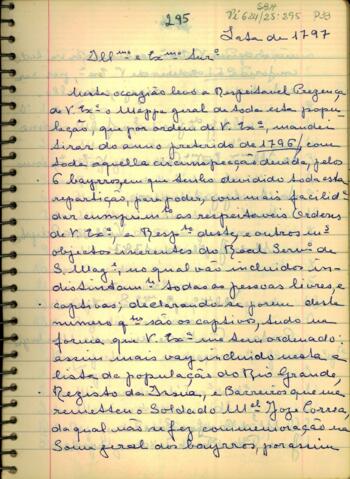 295
Data de 1797
Illmo e Exmo Snr.
Nesta occazião levo a Respeitavel Prezença
de V. Exa o Mappa geral de toda esta popu-
lação, que por ordem de V. Exa, mandei
tirar do anno preterido de 1796/ com
toda aquella circunspecção devida, pelos
6 bayrros, em que tenho devidido toda esta
repartição, para poder, com mais facilid.
dar cumprimto as respeitaveis Ordens
de V. Exa, e Respto deste, e outros ms
objectos inherentes do Real Servo de
S. Mage, no qual vão incluidos in-
distintamte todas as pessoas livres, e
captivas, declarando-se porem deste
numero qtos são os captivos, tudo na
forma que V. Exa me tem ordenado:
assim mais vay incluido nesta a
lista da população do Rio Grande,
Registo da e Barreiros que me
remetteu o Soldado Mel Joze Correa,
da qual não se fez commemoração na
Soma geral dos bayrros, por assim